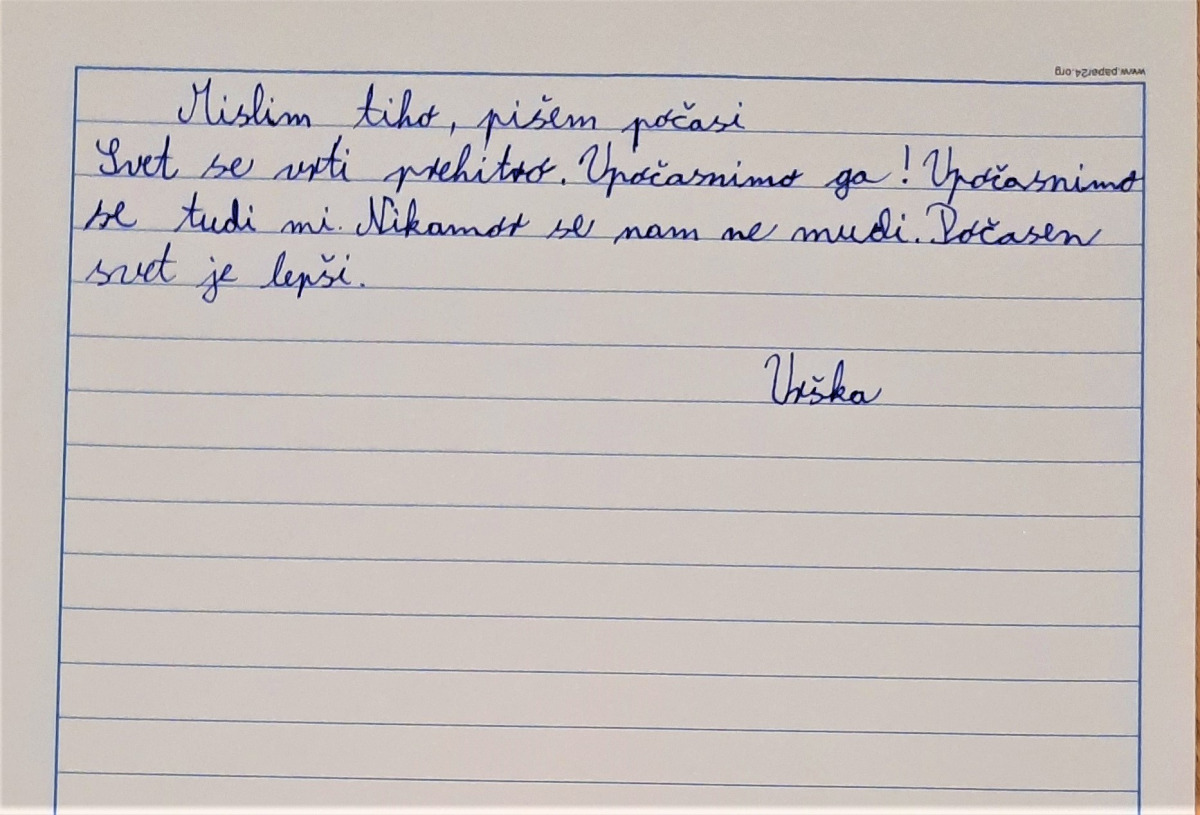 www.paper24.org
Mislim tiho, pišem počasi
Svet se vrti prehitro. Upočasnimo ga! Upočasnimo
se tudi mi. Nikamor se nam ne mudi. Počasen
svet je lepši.
Urška